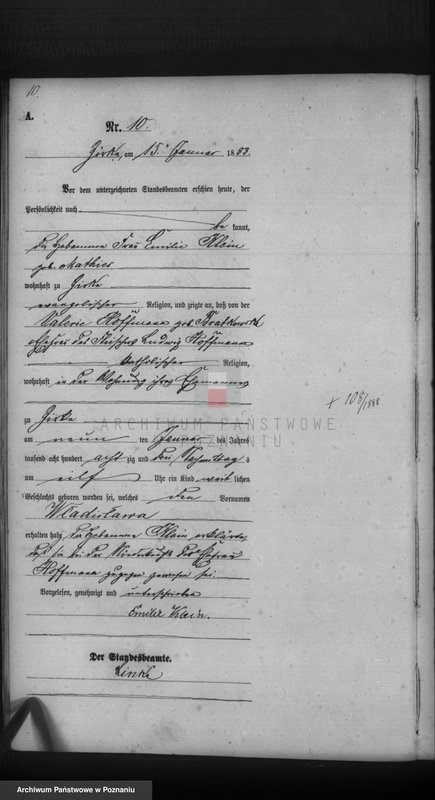 10.
A.
Nr. 10.
Zirke, am 15. Januar 1883.
Vor dem unterzeichneten Standesbeamten erschien heute, der
Persönlichkeit nach
be kannt,
die Hebamme Frau Emilie Klein
geb. Mathies
wohnhaft zu Zirke
evangelischer Religion, und zeigte an, daß von der
Valerie Hoffmann geb. Bratkowska
Ehefrau des Tischlers Ludwig Hoffmann
katholischer Religion,
wohnhaft in der Wohnung ihres Ehemannes
zu Zirke
am neun ten Januar des Jahres
tausend acht hundert acht zig und drei Nachmittag s
um elf Uhr ein Kind weib lichen
Geschlechts geboren worden sei, welches den Vornamen
Wladislawa
erhalten habe. Die Hebamme Klein erklärte,
daß sie bei der Niederkunft der Ehefrau
Hoffmann zugegen gewesen sei.
Vorgelesen, genehmigt und unterschrieben
Emilie Klein.
Der Standesbeamte.
+ 108/1888
ARCHIWUM PAŃSTWOWE
W POZNANIU
Archiwum Państwowe w Poznaniu